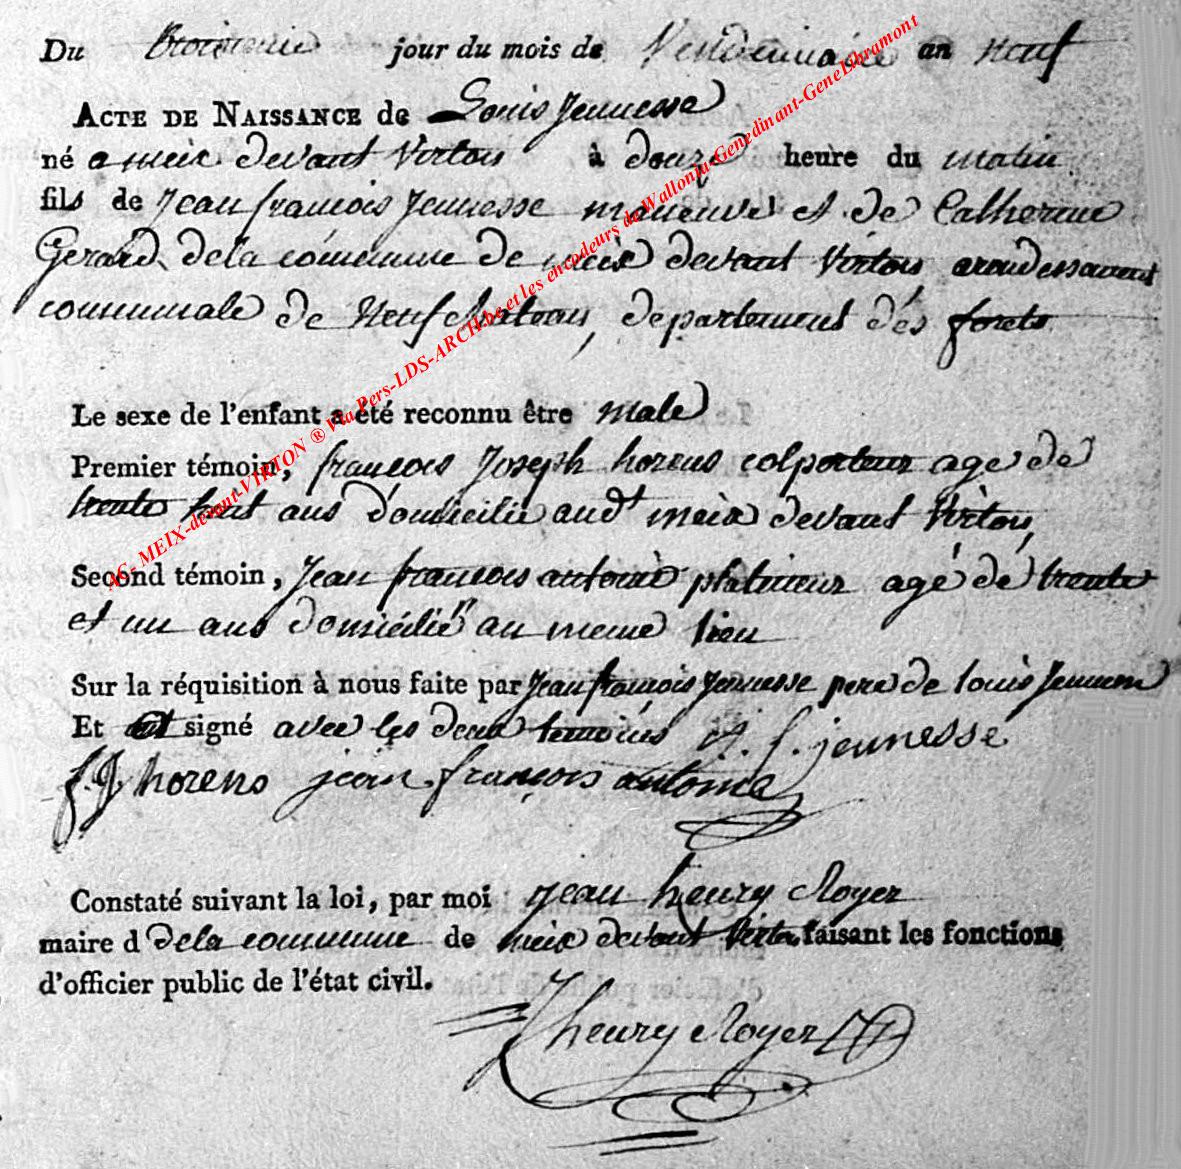 Du troisieme jour du mois de Vendemiaire an neuf
ACTE DE NAISSANCE de Louis Jeunesse
né a meix devant Virton à douze heure du matin
fils de Jean françois Jeunesse maneuve et de Catherine
Gerard, dela commune de meix devant Virton arondessement
communale de Neufchateau, departement dés forets
Le sexe de l'enfant a été reconnu être male
Premier témoin, françois Joseph horens colporteur age de
trente huit ans domicilie aud meix devant Virton,
Second témoin, Jean francois antoine platineur agé de trente
et un ans domicilié au meme lieu
Sur la réquisition à nous faite par Jean françois Jeunesse pere de louis Jeunesse
Et ont signé avec les deux temoins J. f. jeunesse
f. J horens jean françois antoine
Constaté suivant la loi, par moi Jean henry Royer
maire d dela commune de meix devant Virton faisant les fonctions
d'officier public de l'état civil.
J henry Royer
AG- MEIX-devant-VIRTON ® Via Pers-LDS-ARCH.be et les encodeurs de Wallonia-Genedinant-GeneLibramont